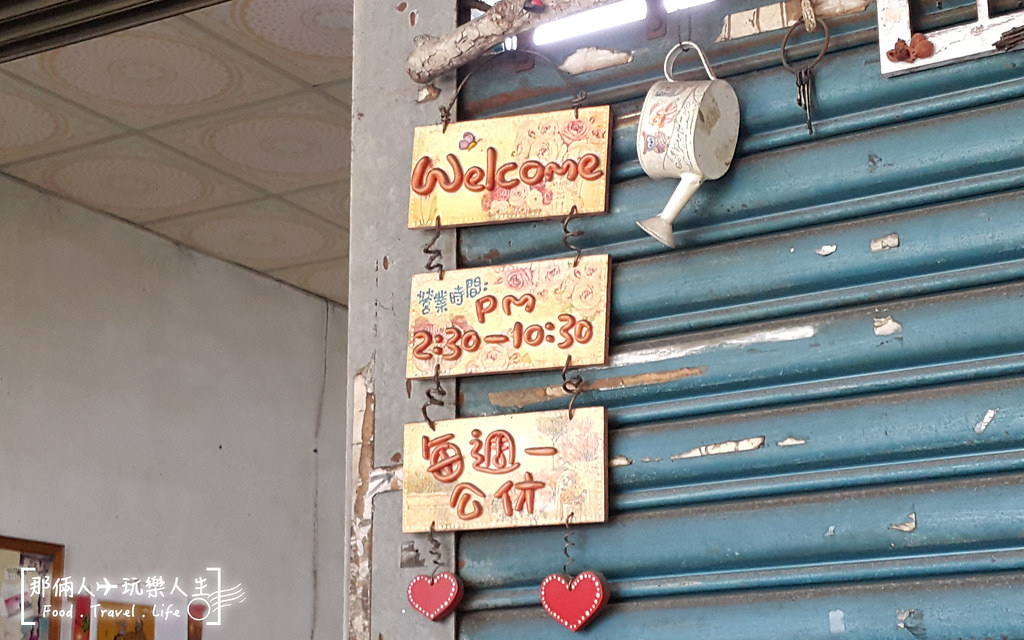 Welcome
營業時間:
PM
2:30-10:30
每週一
公休
那倆人✈玩樂人生
Food . Travel . Life